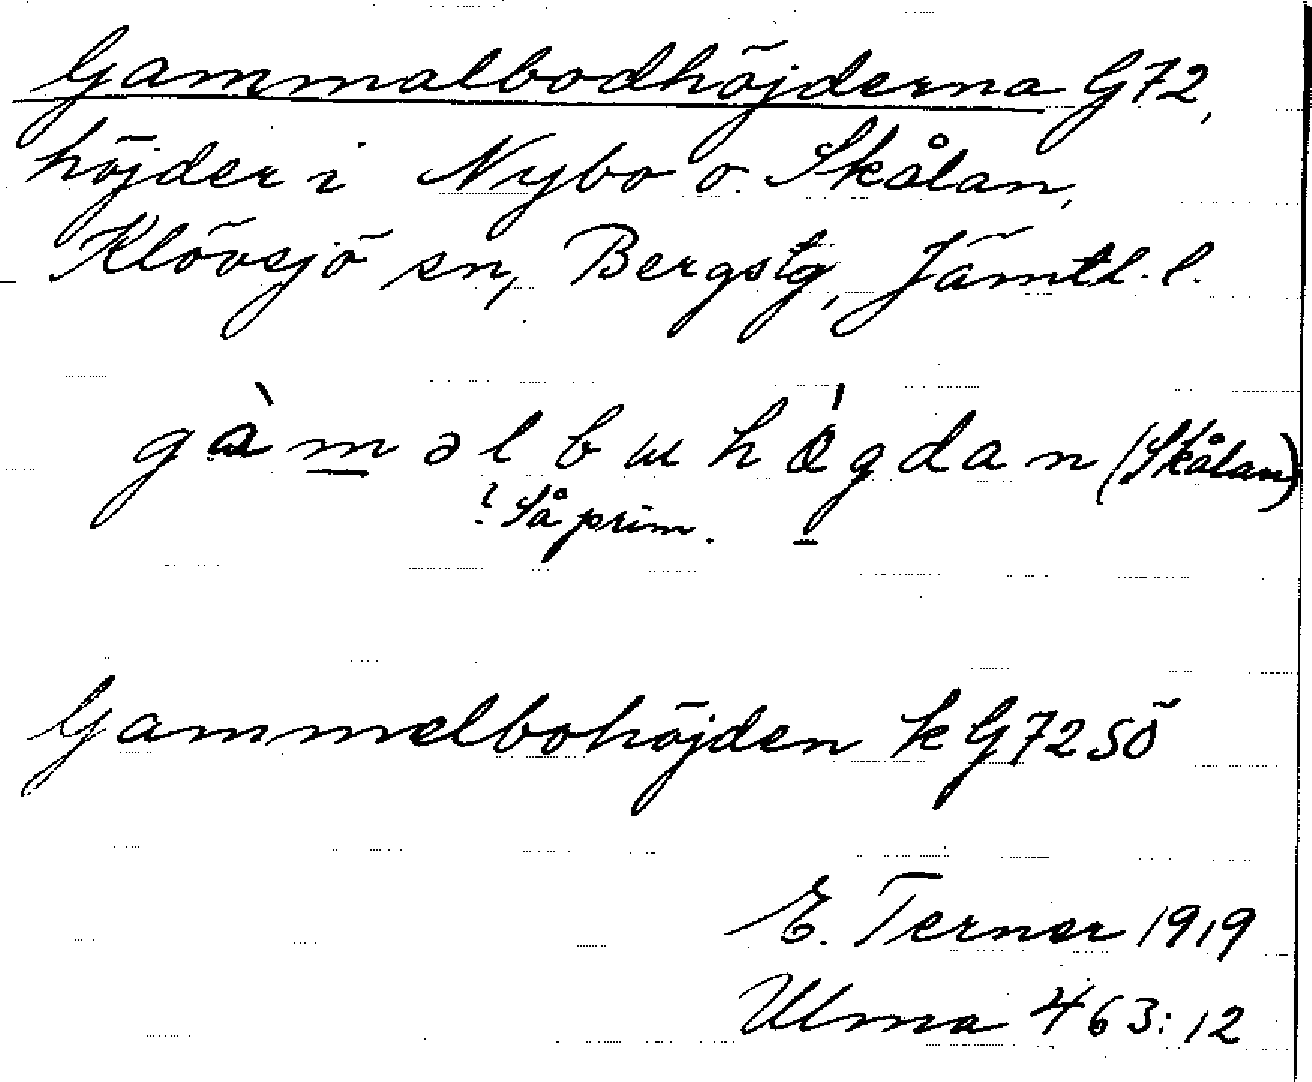 Gammalbodhöjderna G72,
höjder i Nybo o. Skålan,
Klövsjö sn, Bergs tg, Jämtl. l.
gàməlbɯhǿgdan (Skålan)
? Så prim.
Gammelbohöjden k G72SÖ
E. Terner 1919
Ulma 463:12